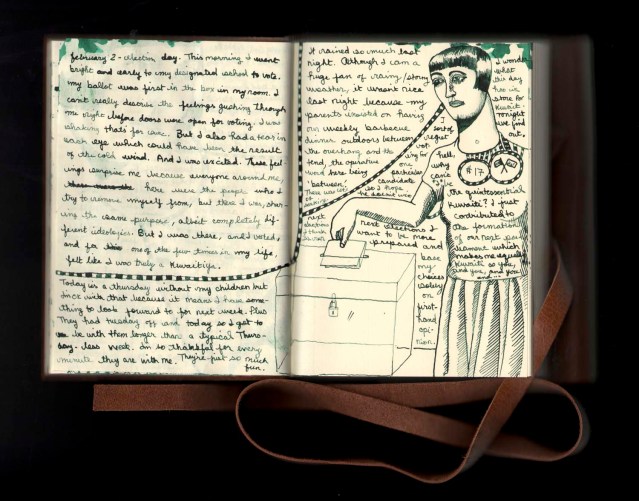 february 2 - election day. This morning I went
bright and early to my designated school to vote.
my ballot was first in the box in my room. I
can't really describe the feelings gushing through
me right before doors were open for voting. I was
shaking that's for sure. But I also had a tear in
each eye which could have been the result
of the cold wind. And I was excited. These feel-
ings surprise me because everyone around me,
here were the people who I
try to remove myself from, but there I was, shar-
ing the same purpose, albeit completely dif-
ferent ideologies. But I was there, and I voted,
and for one of the few times in my life,
felt like I was truly a Kuwaitiya.
Today is a thursday without my children but
since with that because it means I have some-
thing to look forward to for next week. Plus
They had tuesday off and today so I got to
be with them longer than a typical Thurs-
day. less week. I'm so thankful for every
minute they are with me. They're just so much
fun.
It rained so much last
night. Although I am a
huge fan of rainy/stormy
weather, it wasn't nice
last night because my
parents insisted on having
our weekly barbecue
dinner outdoors between
the overhang and the
tend, the operative
word here being
"between."
There was lots of
next
elections
I think
I sort of
regret
voting for one
particular
candidate
so I hope
he doesn't win
next elections I
want to be more
prepared and
base
my
choices
solely
on
first-
hand
opi-
nion.
I wonder
what
this day
has in
store for
Kuwait.
Tonight
we find
out.
#17
hell,
why
can't
I be
the quintessential
Kuwaiti? I just
contributed to
the formation
of our next par-
liament which
makes me equally
Kuwaiti as you,
and you, and you
and...